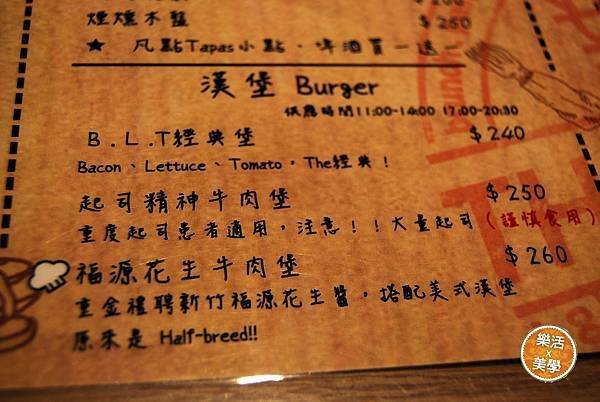 煙燻木盤 $260
★ 凡點Tapas小點，啤酒買一送一
漢堡 Burger
供應時間11:00-14:00 17:00-20:30
B.L.T經典堡 $240
Bacon、Lettuce、Tomato，The經典！
起司精神牛肉堡 $250
重度起司患者適用，注意！！大量起司（謹慎食用）
福源花生牛肉堡 $260
重金禮聘新竹福源花生醬，搭配美式漢堡
原來是 Half-breed!!
樂活
x
美學